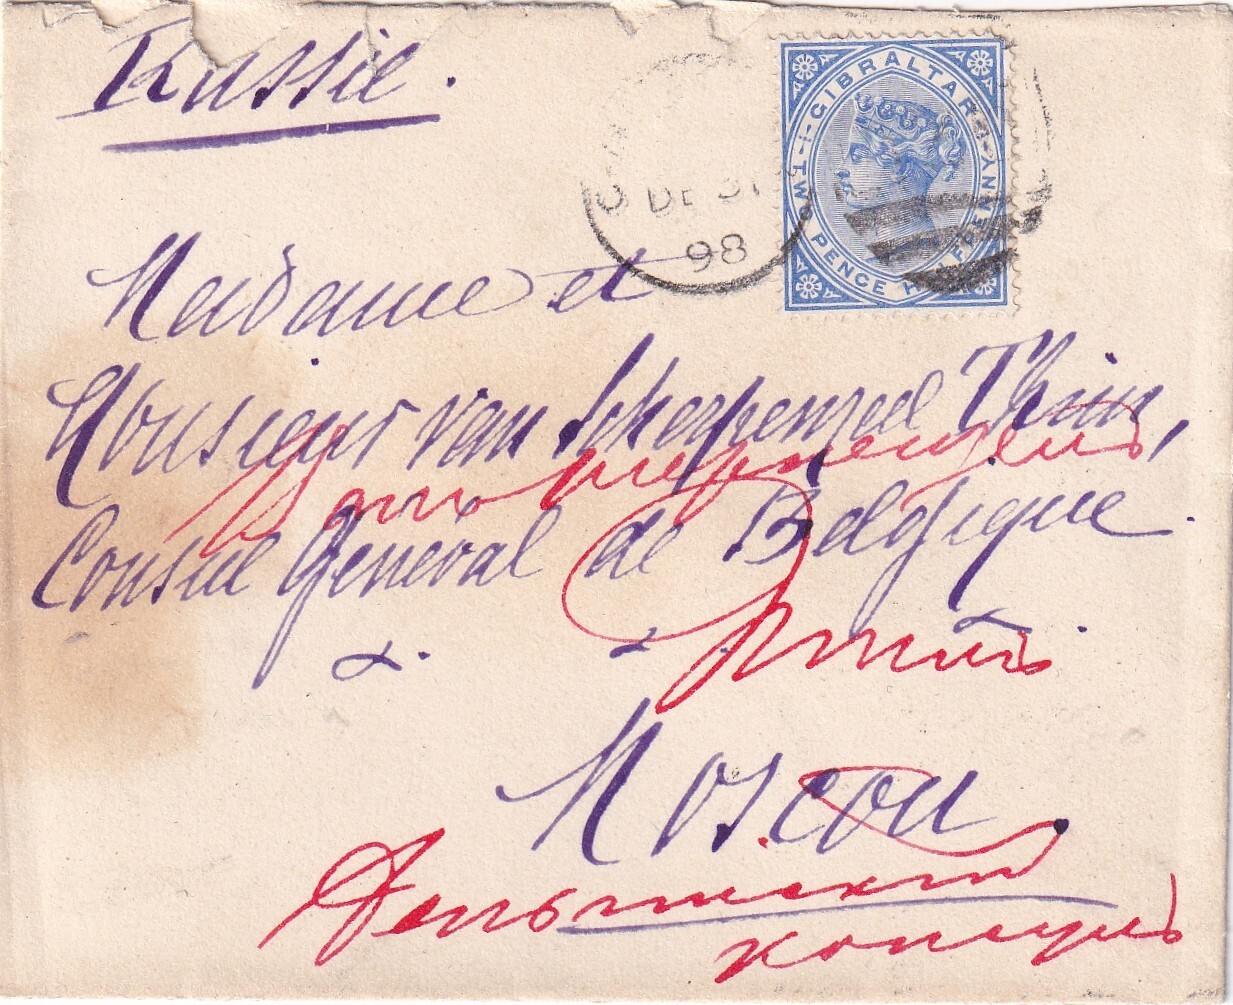 Russie.
GIBRALTAR
TWO PENCE HALF PENNY
DE 31
98
Madame et
Monsieur van Scherpenzeel Thim,
Consul Général de Belgique.
Moscou.
Бельгийский
консулъ